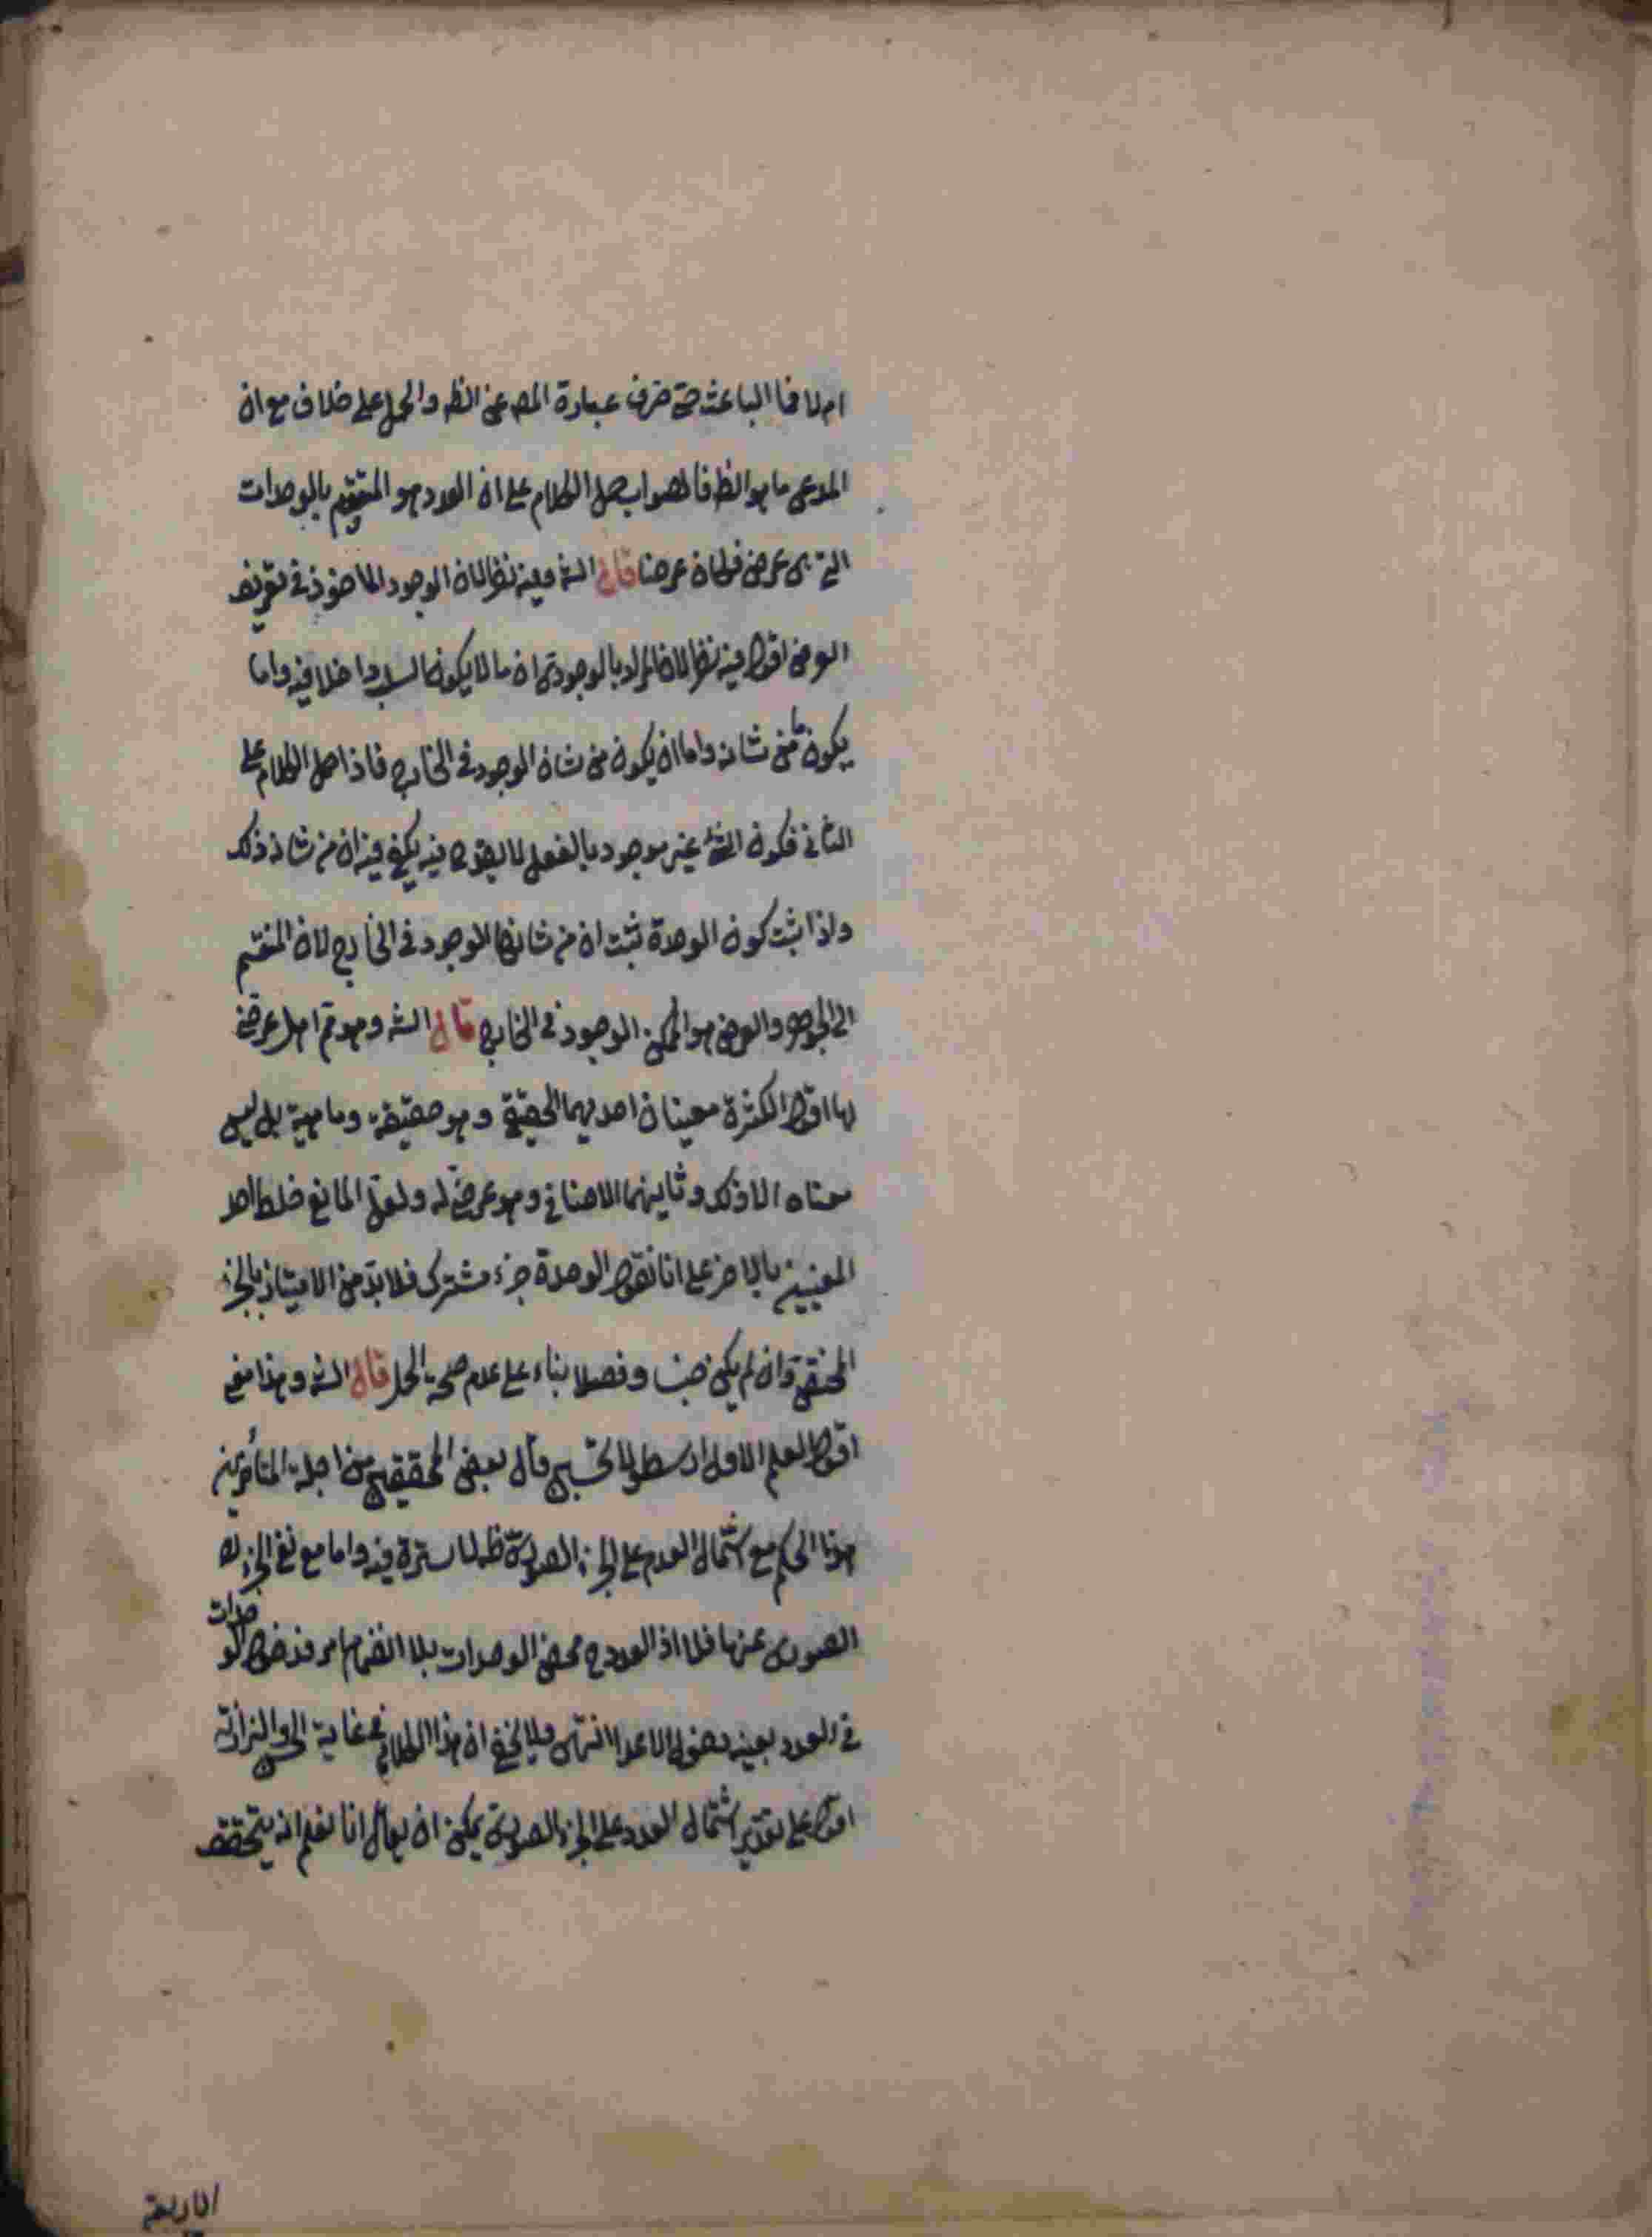 ام لا فما الباعث حتى صرف عبارة المص عن الظ والحمل على خلاف مع ان
المدعى ما هو الظ فالصواب حمل الكلام على ان العدد هو المتقوم بالوحدات
التي هي عرض فكان عرضا قال الش وفيه نظر لان الوجود الماخوذ في تعريف
العرض اقول فيه نظر لان المراد بالوجود اما ان ما لا يكون السلب داخلا فيه واما
يكون ما من شانه واما ان يكون من شان الوجود في الخارج فاذا حمل الكلام على
الثاني فكون الشئ غير موجود بالفعل لا يقدح فيه يكفي فيه ان من شانه ذلك
واذا ثبت كون الوحدة ثبت ان من شانها الوجود في الخارج لان المنقسم
الى الجوهر والعرض هو الممكن الوجود في الخارج قال الش وهو تمامها عرضي
لها اقول الكثرة معينان احديهما الحقيقي وهو حقيقة وماهية بل ليس
معناه الا ذلك وثانيهما الاضافي وهو عرضي له ولعل المانع خلط احد
المعنيين بالاخر على انا نقول الوحدة جزء مشترك فلا بد من الامتياز بالجزء
المختص وان لم يكن جنسا وفصلا بناء على عدم صحة الحمل قال الش وهذا معنى
اقول المعلم الاول ارسطو لا تحسبن قال بعض المحققين من اجلة المتأخرين
هذا الحكم مع اشتمال العدد على الجزء الصوري ظ لا سترة فيه واما مع نفي الجزء
الصوري عنها فلا اذ العدد ح محض الوحدات بلا انضمام امر فدخول الوحدات
في العدد بعينه دخول الاعداد انتهى ولا يخفى ان هذا الكلام في غاية الحسن والنزاتة
اقول على تقدير اشتمال العدد على الجزء الصوري يمكن ان يقال انا نعلم انه يتحقق
الاربعة